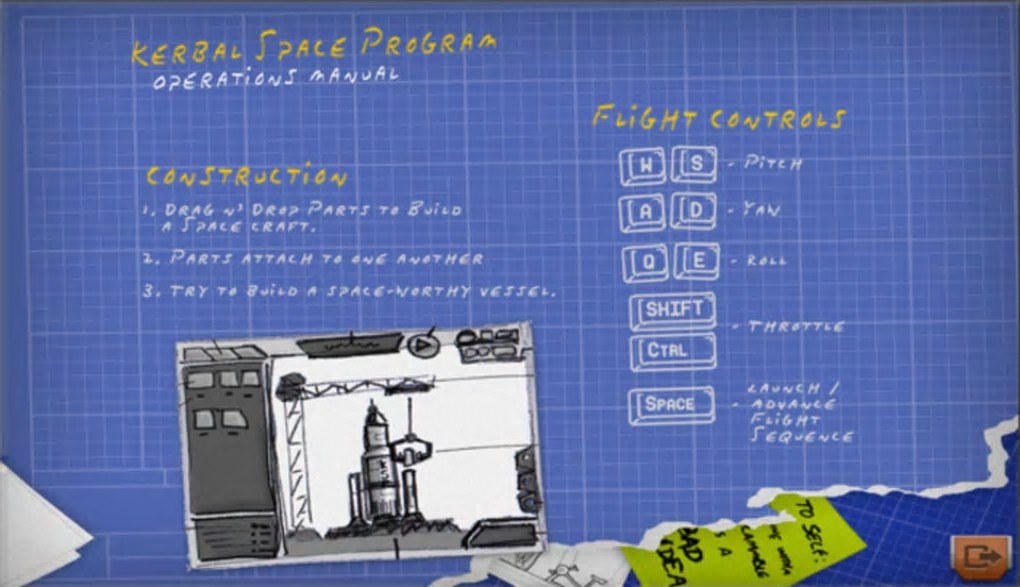 KERBAL SPACE PROGRAM
OPERATIONS MANUAL
CONSTRUCTION
1. DRAG N' DROP PARTS TO BUILD
A SPACE CRAFT.
2. PARTS ATTACH TO ONE ANOTHER
3. TRY TO BUILD A SPACE-WORTHY VESSEL.
FLIGHT CONTROLS
W S - PITCH
A D - YAW
Q E - ROLL
SHIFT
- THROTTLE
CTRL
SPACE - LAUNCH /
ADVANCE
FLIGHT
SEQUENCE
TO SELF:
IS A
BAD
IDEA